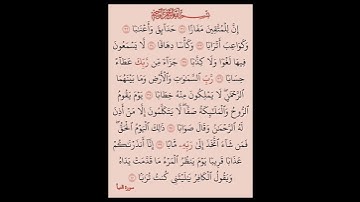 بِسْمِ اللَّهِ الرَّحْمَٰنِ الرَّحِيمِ
إِنَّ لِلْمُتَّقِينَ مَفَازًا ۝ حَدَائِقَ وَأَعْنَابًا ۝
وَكَوَاعِبَ أَتْرَابًا ۝ وَكَأْسًا دِهَاقًا ۝ لَّا يَسْمَعُونَ
فِيهَا لَغْوًا وَلَا كِذَّابًا ۝ جَزَاءً مِّن رَّبِّكَ عَطَاءً
حِسَابًا ۝ رَّبِّ السَّمَٰوَٰتِ وَالْأَرْضِ وَمَا بَيْنَهُمَا
الرَّحْمَٰنِ ۖ لَا يَمْلِكُونَ مِنْهُ خِطَابًا ۝ يَوْمَ يَقُومُ
الرُّوحُ وَالْمَلَٰئِكَةُ صَفًّا ۖ لَّا يَتَكَلَّمُونَ إِلَّا مَنْ أَذِنَ
لَهُ الرَّحْمَٰنُ وَقَالَ صَوَابًا ۝ ذَٰلِكَ الْيَوْمُ الْحَقُّ ۖ
فَمَن شَاءَ اتَّخَذَ إِلَىٰ رَبِّهِ مَآبًا ۝ إِنَّا أَنذَرْنَٰكُمْ
عَذَابًا قَرِيبًا يَوْمَ يَنظُرُ الْمَرْءُ مَا قَدَّمَتْ يَدَاهُ
وَيَقُولُ الْكَافِرُ يَٰلَيْتَنِي كُنتُ تُرَٰبًا ۝
سورة النبأ